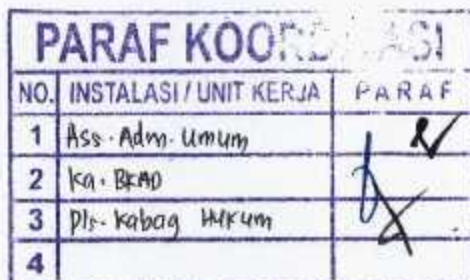 PARAF KOORDINASI
NO. INSTALASI / UNIT KERJA PARAF
1 Ass. Adm. Umum
2 Ka. BKAD
3 Plt. Kabag Hukum
4